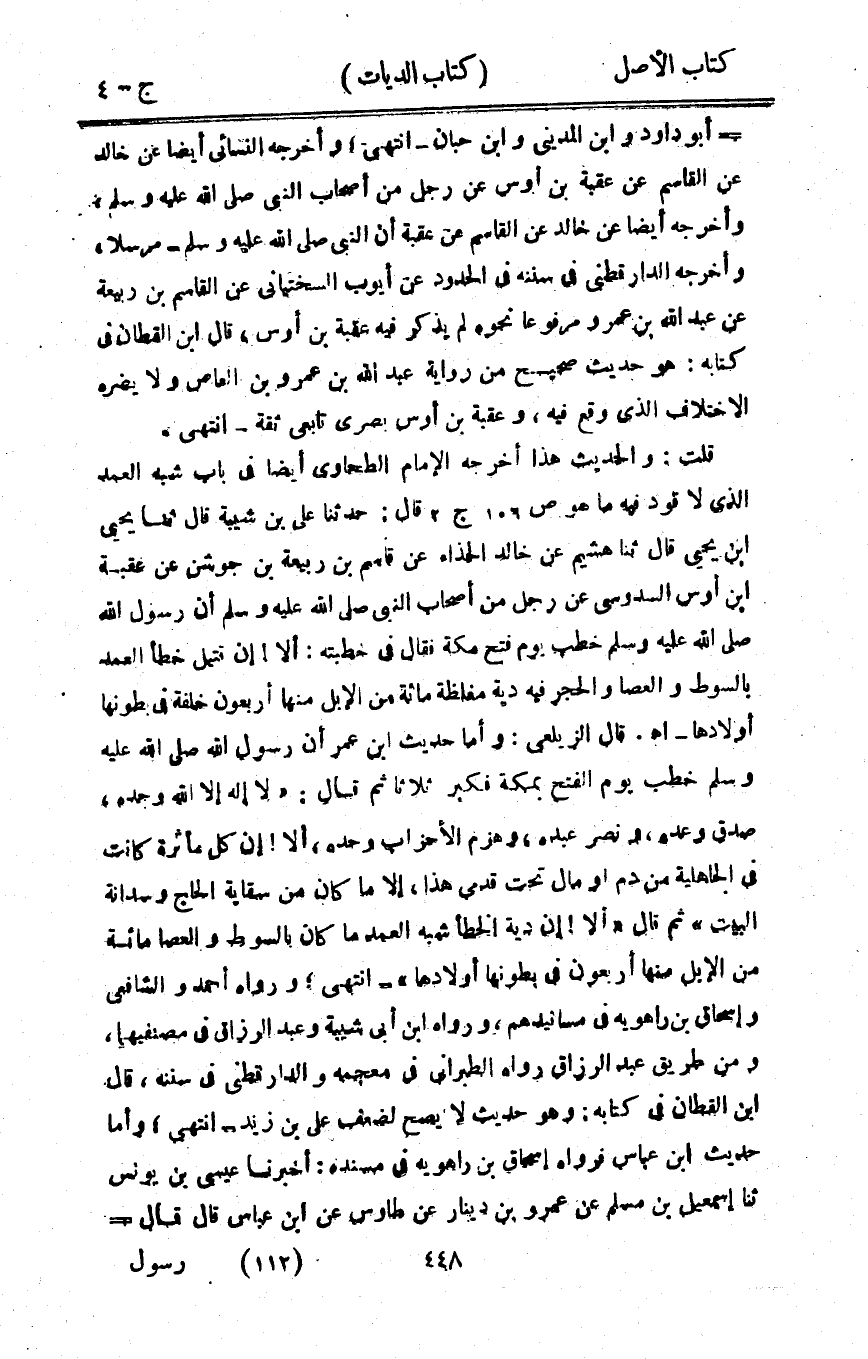 كتاب الأصل (كتاب الديات) ج – ٤
= أبو داود و ابن المدينى و ابن حبان ـ انتهى ؛ و أخرجه النسائى أيضا عن خالد
عن القاسم عن عقبة بن أوس عن رجل من أصحاب النبى صلى الله عليه و سلم ،
و أخرجه أيضا عن خالد عن القاسم عن عقبة أن النبى صلى الله عليه و سلم ـ مرسلا ،
و أخرجه الدارقطنى فى سننه فى الحدود عن أيوب السختيانى عن القاسم بن ربيعة
عن عبد الله بن عمرو مرفوعا نحوه لم يذكر فيه عقبة بن أوس ، قال ابن القطان فى
كتابه : هو حديث صحيح من رواية عبد الله بن عمرو بن العاص و لا يضره
الاختلاف الذى وقع فيه ، و عقبة بن أوس بصرى تابعى ثقة ـ انتهى .
قلت : و الحديث هذا أخرجه الإمام الطحاوى أيضا فى باب شبه العمد
الذى لا قود فيه ما هو ص ١٠٦ ج ٢ قال : حدثنا على بن شيبة قال ثنا يحيى
ابن يحيى قال ثنا هشيم عن خالد الحذاء عن قاسم بن ربيعة بن جوشن عن عقبة
ابن أوس السدوسى عن رجل من أصحاب النبى صلى الله عليه و سلم أن رسول الله
صلى الله عليه وسلم خطب يوم فتح مكة فقال فى خطبته : ألا ! إن قتيل خطأ العمد
بالسوط و العصا و الحجر فيه دية مغلظة مائة من الإبل منها أربعون خلفة فى بطونها
أولادها ـ اه . قال الزيلعى : و أما حديث ابن عمر أن رسول الله صلى الله عليه
و سلم خطب يوم الفتح بمكة فكبر ثلاثا ثم قال : « لا إله إلا الله وحده ،
صدق وعده ، و نصر عبده ، و هزم الأحزاب وحده ، ألا ! إن كل مأثرة كانت
فى الجاهلية من دم او مال تحت قدمى هذا ، إلا ما كان من سقاية الحاج و سدانة
البيت » ثم قال « ألا ! إن دية الخطأ شبه العمد ما كان بالسوط و العصا مائة
من الإبل منها أربعون فى بطونها أولادها » ـ انتهى ؛ و رواه أحمد و الشافعى
و إسحاق بن راهويه فى مسانيدهم ، و رواه ابن أبى شيبة وعبد الرزاق فى مصنفيهما ،
و من طريق عبد الرزاق رواه الطبرانى فى معجمه و الدارقطنى فى سننه ، قال
ابن القطان فى كتابه : وهو حديث لا يصح لضعف على بن زيد ـ انتهى ؛ و أما
حديث ابن عباس فرواه إسحاق بن راهويه فى مسنده : أخبرنا عيسى بن يونس
ثنا إسمعيل بن مسلم عن عمرو بن دينار عن طاوس عن ابن عباس قال قال =
٤٤٨ (١١٢) رسول